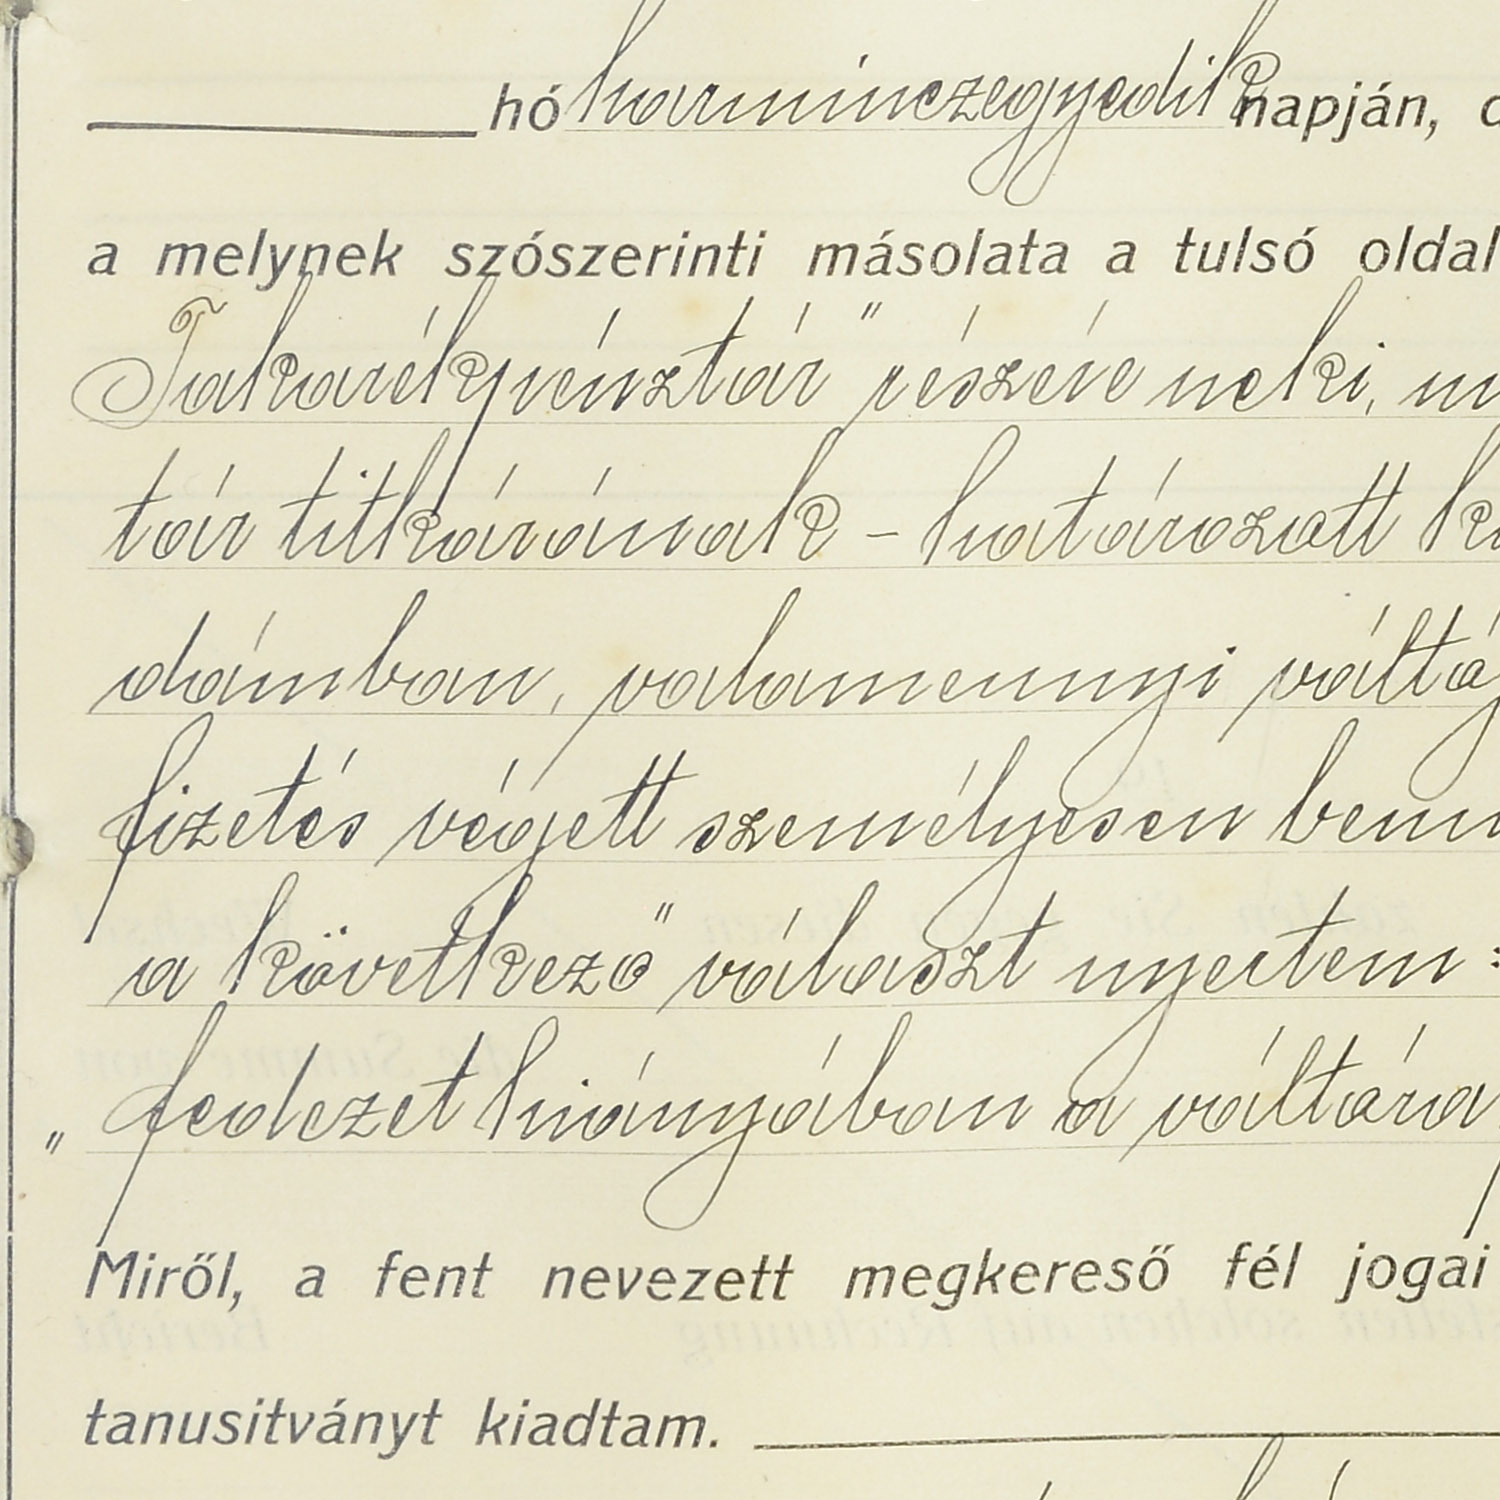 hó harminczegyedik napján, 
a melynek szószerinti másolata a tulsó oldal
Takarékpénztár" részére neki,
tár titkárának - határozott
dámban, valamennyi váltó
fizetés végett személyesen
a következő választ nyertem:
„fedezet hiányában a váltóra
Miről, a fent nevezett megkereső fél jogai
tanusitványt kiadtam.